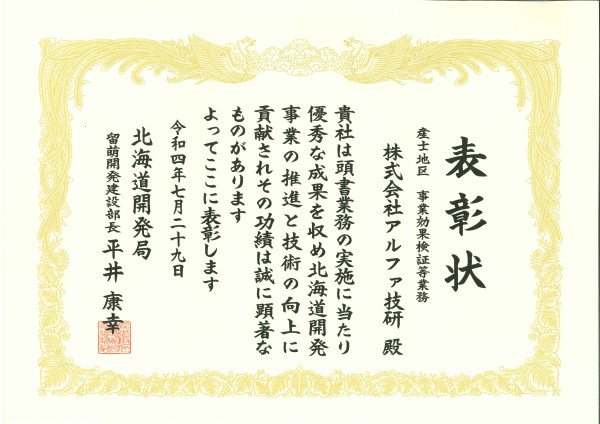 表彰状
産士地区 事業効果検証等業務
株式会社アルファ技研 殿
貴社は頭書業務の実施に当たり
優秀な成果を収め北海道開発
事業の推進と技術の向上に
貢献されその功績は誠に顕著な
ものがあります
よってここに表彰します
令和四年七月二十九日
北海道開発局
留萌開発建設部長 平井 康幸